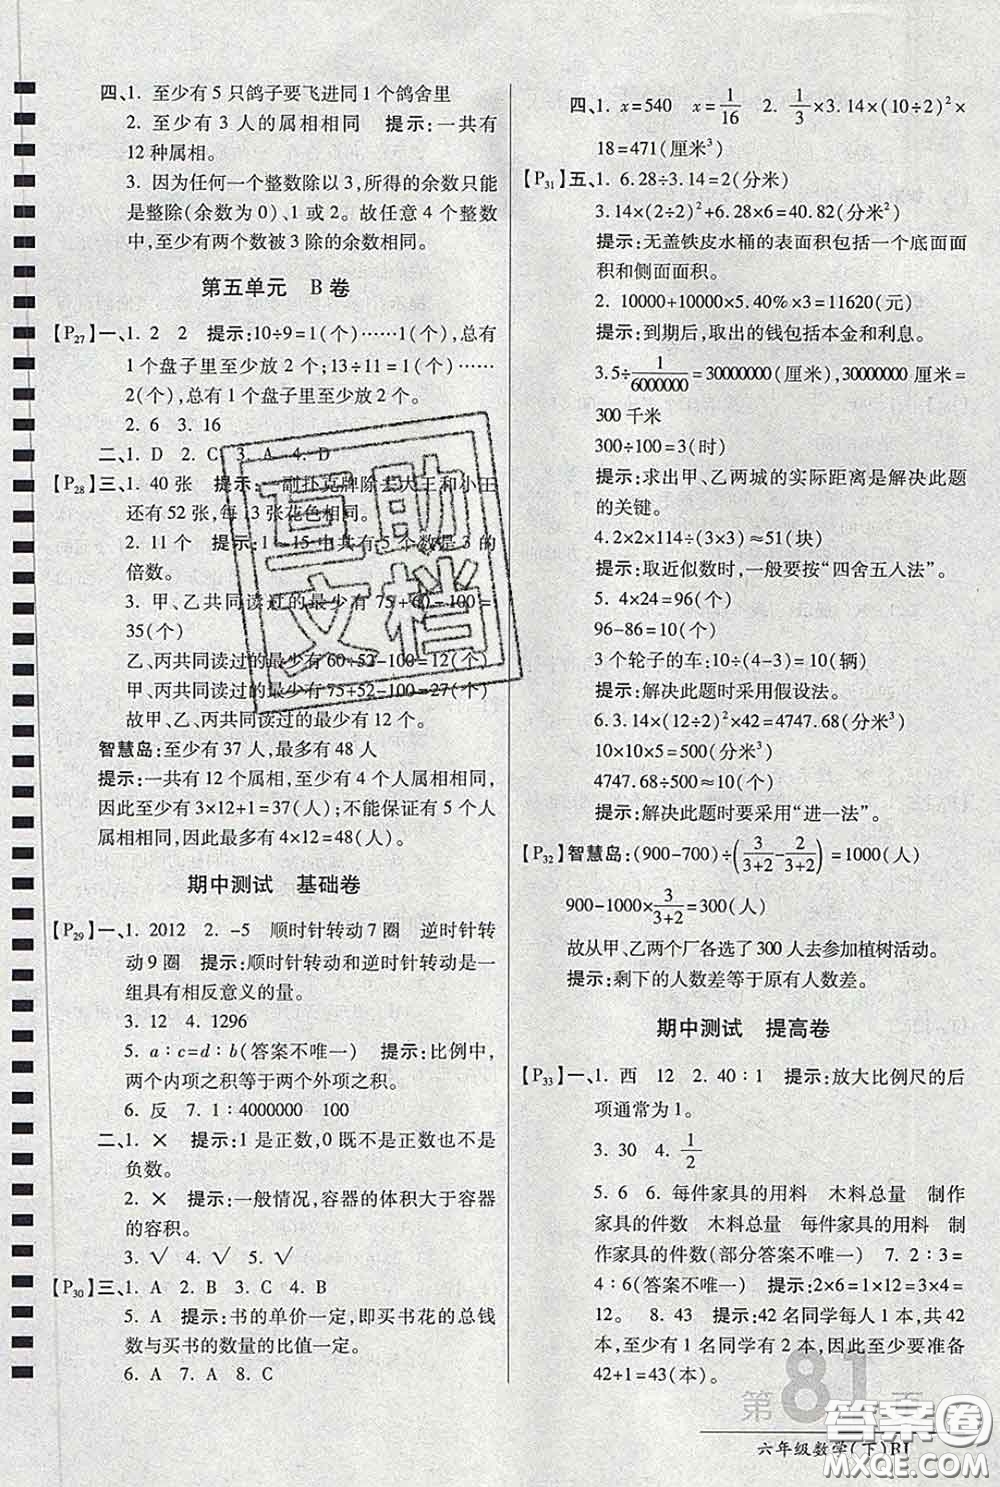 四、1. 至少有 5 只鸽子要飞进同 1 个鸽舍里
2. 至少有 3 人的属相相同　提示:一共有
12 种属相。
3. 因为任何一个整数除以 3,所得的余数只能
是整除(余数为 0)、1 或 2。故任意 4 个整数
中,至少有两个数被 3 除的余数相同。
第五单元　B 卷
【P27】一、1. 2　2　提示:10÷9=1(个)……1(个),总有
1 个盘子里至少放 2 个;13÷11=1(个)……
2(个),总有 1 个盘子里至少放 2 个。
2. 6　3. 16
二、1. D　2. C　3. A　4. D
【P28】三、1. 40 张　提示:一副扑克牌除去大王和小王
还有 52 张,每 13 张花色相同。
2. 11 个　提示:1~15 中共有 5 个数是 3 的
倍数。
3. 甲、乙共同读过的最少有 75+60-100=
35(个)
乙、丙共同读过的最少有 60+52-100=12(个)
甲、丙共同读过的最少有 75+52-100=27(个)
故甲、乙、丙共同读过的最少有 12 个。
智慧岛:至少有 37 人,最多有 48 人
提示:一共有 12 个属相,至少有 4 个人属相相同,
因此至少有 3×12+1=37(人);不能保证有 5 个人
属相相同,因此最多有 4×12=48(人)。
期中测试　基础卷
【P29】一、1. 2012　2. -5　顺时针转动 7 圈　逆时针转
动 9 圈　提示:顺时针转动和逆时针转动是
一组具有相反意义的量。
3. 12　4. 1296
5. a∶c=d∶b(答案不唯一)　提示:比例中,
两个内项之积等于两个外项之积。
6. 反　7. 1∶4000000　100
二、1. ×　提示:1 是正数,0 既不是正数也不是
负数。
2. ×　提示:一般情况,容器的体积大于容器
的容积。
3. √　4. √　5. √
【P30】三、1. A　2. B　3. C　4. B
5. A　提示:书的单价一定,即买书花的总钱
数与买书的数量的比值一定。
6. A　7. A　8. C
四、1. x=540　x=1/16　2. 1/3×3.14×(10÷2)²×
18=471(厘米³)
【P31】五、1. 6.28÷3.14=2(分米)
3.14×(2÷2)²+6.28×6=40.82(分米²)
提示:无盖铁皮水桶的表面积包括一个底面面
积和侧面面积。
2. 10000+10000×5.40%×3=11620(元)
提示:到期后,取出的钱包括本金和利息。
3.5÷1/6000000=30000000(厘米),30000000厘米=
300 千米
300÷100=3(时)
提示:求出甲、乙两城的实际距离是解决此题
的关键。
4.2×2×114÷(3×3)≈51(块)
提示:取近似数时,一般要按“四舍五入法”。
5. 4×24=96(个)
96-86=10(个)
3 个轮子的车:10÷(4-3)=10(辆)
提示:解决此题时采用假设法。
6.3.14×(12÷2)²×42=4747.68(分米³)
10×10×5=500(分米³)
4747.68÷500≈10(个)
提示:解决此题时要采用“进一法”。
【P32】智慧岛:(900-700)÷(3/(3+2)-2/(3+2))=1000(人)
900-1000×3/(3+2)=300(人)
故从甲、乙两个厂各选了 300 人去参加植树活动。
提示:剩下的人数差等于原有人数差。
期中测试　提高卷
【P33】一、1. 西　12　2. 40∶1　提示:放大比例尺的后
项通常为 1。
3. 30　4. 1/2
5. 6　6. 每件家具的用料　木料总量　制作
家具的件数　木料总量　每件家具的用料　制
作家具的件数(部分答案不唯一)　7. 2∶3=
4∶6(答案不唯一)　提示:2×6=1×12=3×4=
12。　8. 43　提示:42 名同学每人 1 本,共 42
本,至少有 1 名同学要有 2 本,因此至少要准备
42+1=43(本)
第81页
六年级数学(下)RJ
互助
文档
答案圈
MXQE.COM